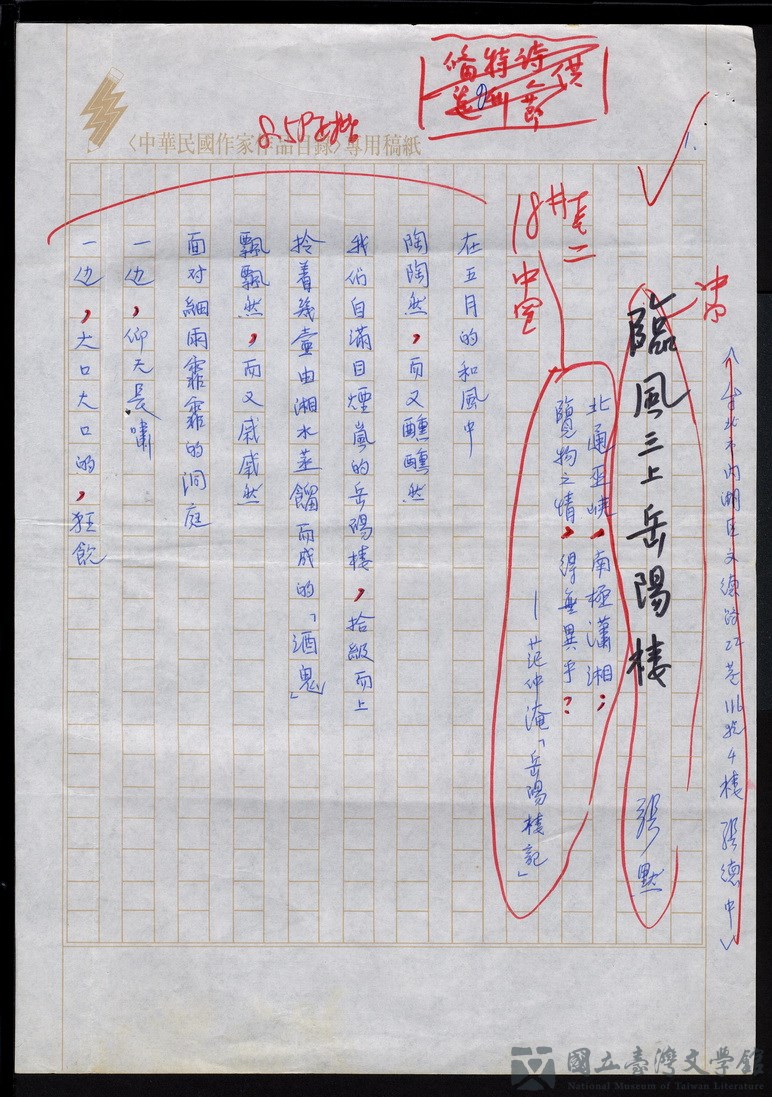 〈中華民國作家作品目錄〉專用稿紙
詩特
供
1.
〈台北市內湖區文德路22巷116號4樓 張德中〉
臨風三上岳陽楼
張默
北通巫峽,南極瀟湘;
覽物之情,得無異乎?
—范仲淹「岳陽楼記」
在五月的和風中
陶陶然,而又醺醺然
我们自滿目煙嵐的岳陽楼,拾級而上
拎着幾壺由湘水蒸餾而成的「酒鬼」
飄飄然,而又戚戚然
面对細雨霏霏的洞庭
一边,仰天長嘯
一边,大口大口的,狂飲
國立臺灣文學館
National Museum of Taiwan Literature